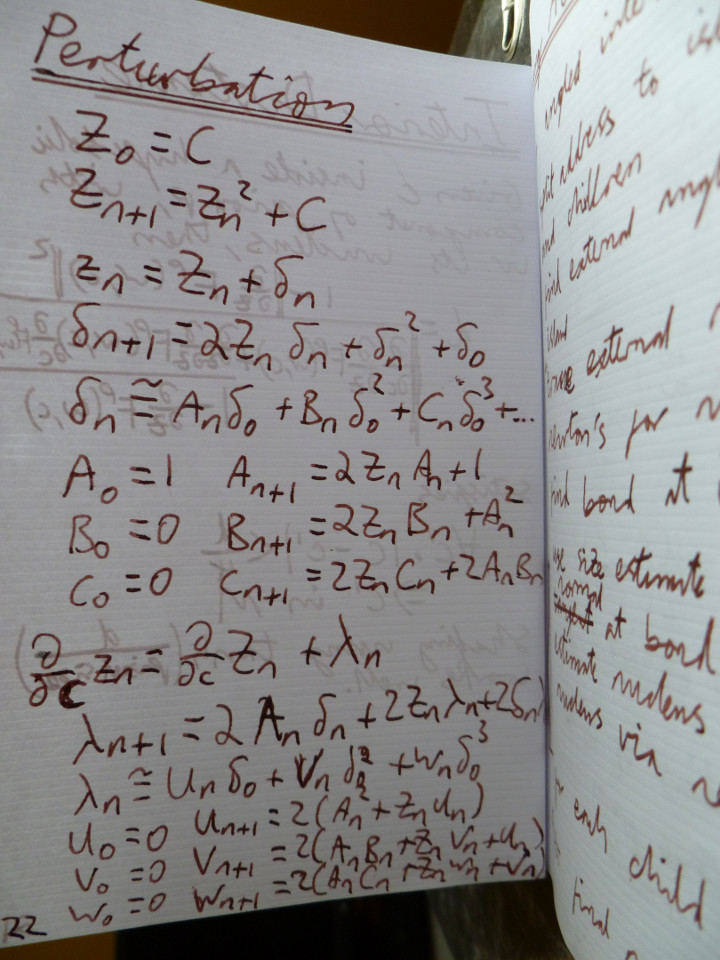 Perturbation
Z₀ = C
Zₙ₊₁ = Zₙ² + C
zₙ = Zₙ + δₙ
δₙ₊₁ = 2Zₙ δₙ + δₙ² + δ₀
δₙ ≅ Aₙδ₀ + Bₙδ₀² + Cₙδ₀³ + ...
A₀ = 1 Aₙ₊₁ = 2ZₙAₙ + 1
B₀ = 0 Bₙ₊₁ = 2ZₙBₙ + Aₙ²
C₀ = 0 Cₙ₊₁ = 2ZₙCₙ + 2AₙBₙ
∂/∂c zₙ = ∂/∂c Zₙ + λₙ
λₙ₊₁ = 2Aₙδₙ + 2Zₙλₙ + 2δₙλ
λₙ ≅ Uₙδ₀ + Vₙδ₀² + Wₙδ₀³
U₀ = 0 Uₙ₊₁ = 2(Aₙ² + ZₙUₙ)
V₀ = 0 Vₙ₊₁ = 2(AₙBₙ + ZₙVₙ + Uₙ)
W₀ = 0 Wₙ₊₁ = 2(AₙCₙ + ZₙWₙ + Vₙ)
22
angled inte
address to
and children
find external angl
island
external
newton's for
find bond at
use size estimate
normal
at bond
estimate nucleus
nucleus via
each child
final